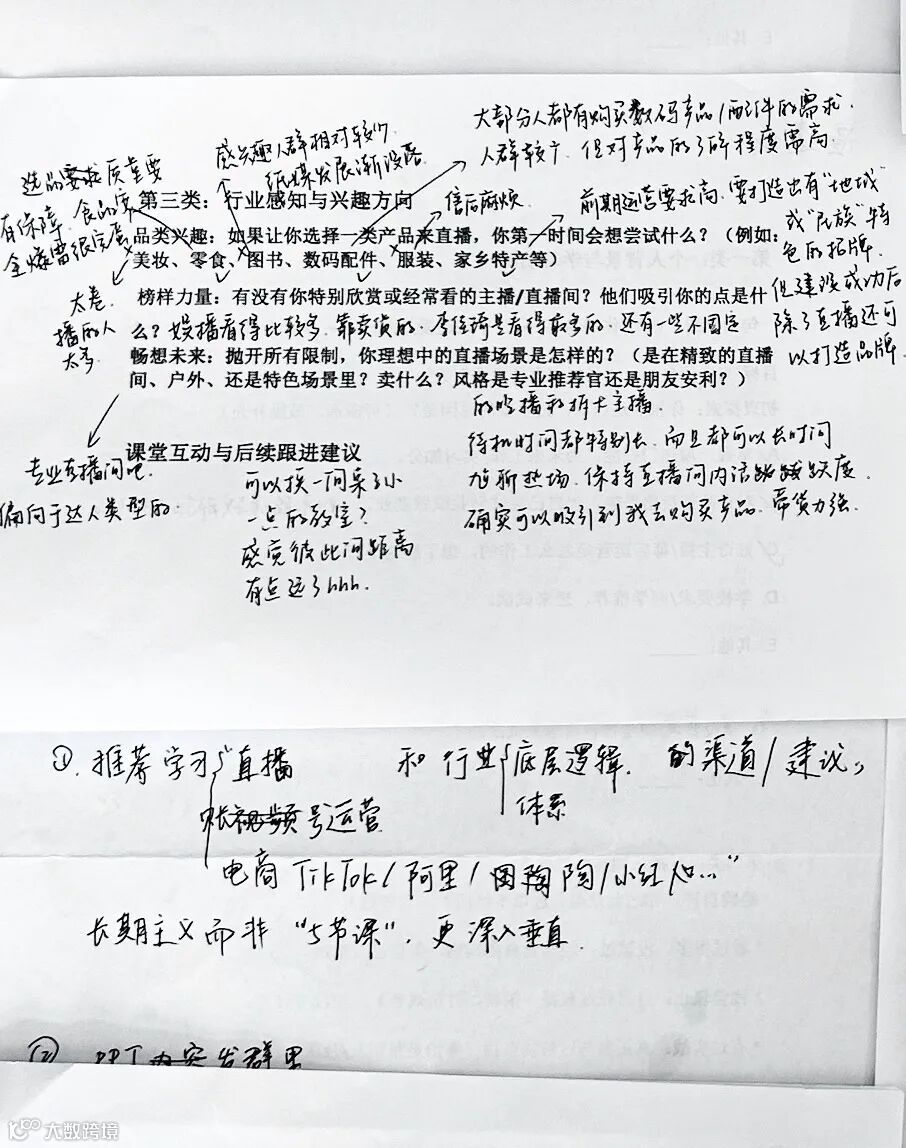 大部分人都有购买数码产品/配件的需求.
人群较广,但对产品的了解程度需高
感兴趣人群相对较少
纸媒发展渐没落
选品要求质量要
有保障,食品安
全爆雷很完蛋
第三类:行业感知与兴趣方向
售后麻烦
前期运营要求高,要打造出有“地域”
或“民族”特
色的招牌
但建设成功后
除了直播还可
以打造品牌
品类兴趣:如果让你选择一类产品来直播,你第一时间会想尝试什么?(例如:
美妆、零食、图书、数码配件、服装、家乡特产等)
太卷.
播的人
太多
榜样力量:有没有你特别欣赏或经常看的主播/直播间?他们吸引你的点是什
么?娱播看得比较多.靠卖货的.李佳琦是看得最多的.还有一些不固定
畅想未来:抛开所有限制,你理想中的直播场景是怎样的?(是在精致的直播
间、户外、还是特色场景里?卖什么?风格是专业推荐官还是朋友安利?)
的吃播和拆卡主播.
待机时间都特别长,而且都可以长时间
尬聊热场.保持直播间内活跃度
确实可以吸引到我去购买产品.带货力强.
专业直播间吧
偏向于达人类型的.
课堂互动与后续跟进建议
可以换一间桌子小
一点的教室?
感觉彼此间距离
有点远了hhh.
①.推荐学习“直播 和行业底层逻辑.的渠道/建议
号运营 体系
电商 TikTok/阿里/ /小红
长期主义而非“5节课”,更深入垂直.
② PPT 发群里